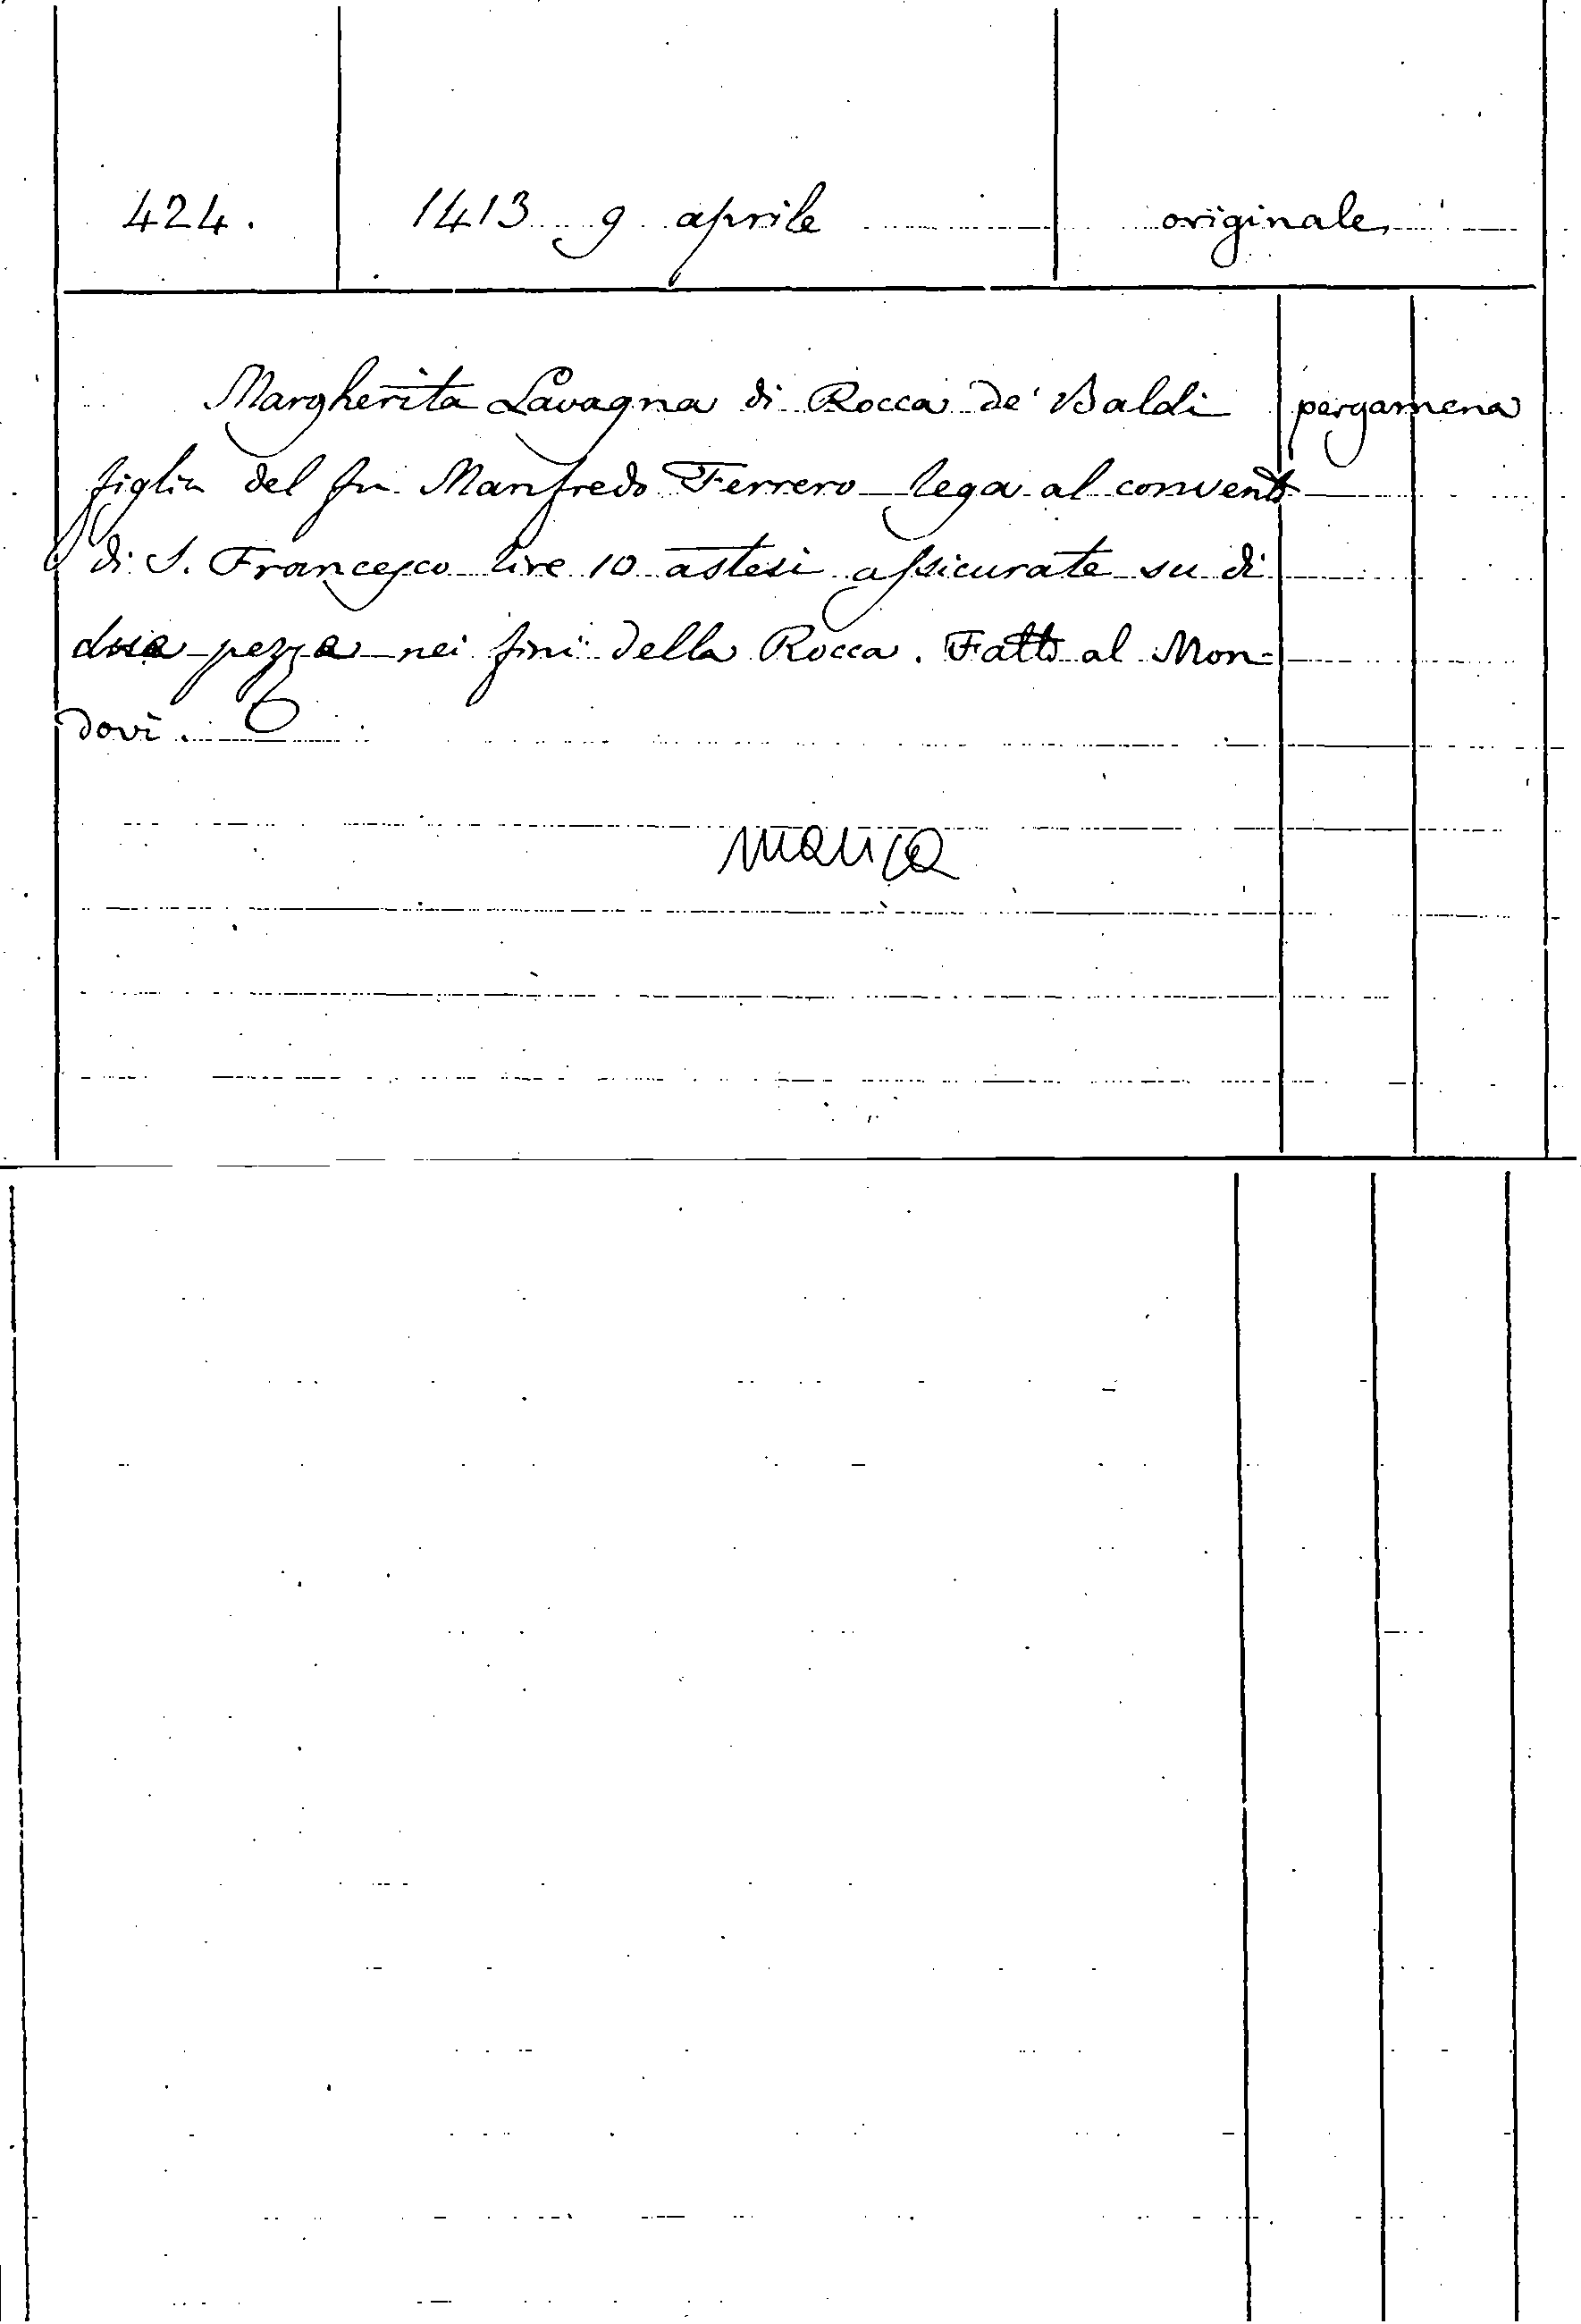 424. 1413 9 aprile originale
Margherita Lavagna di Rocca de' Baldi pergamena
figlia del fu Manfredo Ferrero lega al convento
di S. Francesco lire 10 astesi assicurate su di
due pezze nei fini della Rocca. Fatto al Mon=
dovì.
manca